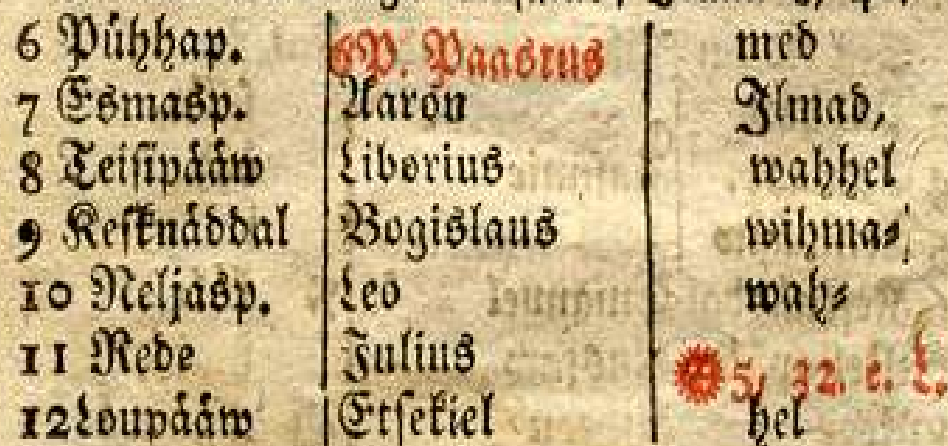 6 Pühhap. 6 P. Paastus med
7 Esmasp. Aaron Ilmad,
8 Teisipääw Liborius wahhel
9 Kesknäddal Bogislaus wihma⸗
10 Neljasp. Leo wah⸗
11 Rede Julius 5, 32. e. L.
12 Loupääw Etsekiel hel